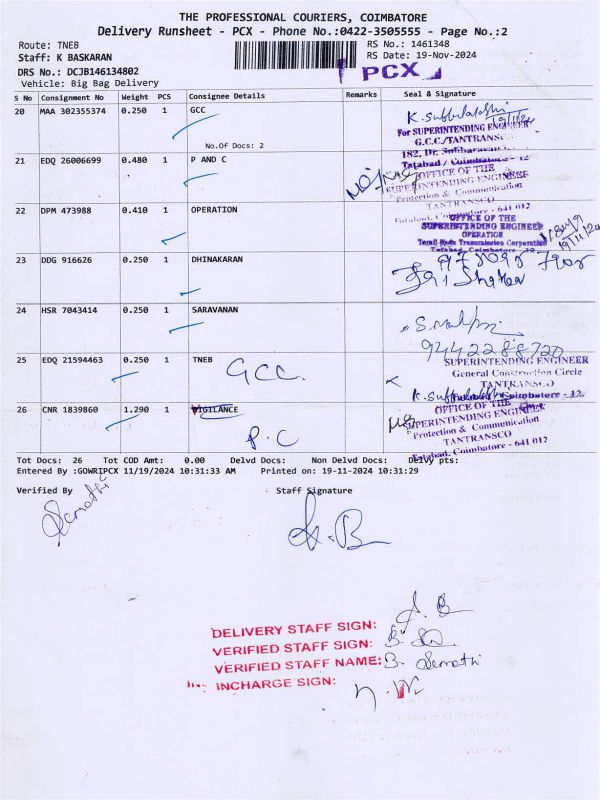 THE PROFESSIONAL COURIERS, COIMBATORE
Delivery Runsheet - PCX - Phone No.:0422-3505555 - Page No.:2
Route: TNEB RS No.: 1461348
Staff: K BASKARAN RS Date: 19-Nov-2024
DRS No.: DCJB146134802 PCX
Vehicle: Big Bag Delivery
S No Consignment No Weight PCS Consignee Details Remarks Seal & Signature
20 MAA 302355374 0.250 1 GCC
No.Of Docs: 2
For SUPERINTENDING ENGINEER
G.C.C./TANTRANSCO
182, Dr. Subbarayan
Tatabad / Coimbatore - 12
21 EDQ 26006699 0.480 1 P AND C
OFFICE OF THE
SUPERINTENDING ENGINEER
Protection & Communication
TANTRANSCO
Tatabad, Coimbatore - 641 012
22 DPM 473988 0.410 1 OPERATION
OFFICE OF THE
SUPERINTENDING ENGINEER
OPERATION
Tamil Nadu Transmission Corporation
Tatabad, Coimbatore - 12
23 DDG 916626 0.250 1 DHINAKARAN
24 HSR 7043414 0.250 1 SARAVANAN
9442288720
25 EDQ 21594463 0.250 1 TNEB
GCC.
SUPERINTENDING ENGINEER
General Construction Circle
TANTRANSCO
Coimbatore - 12.
26 CNR 1839860 1.290 1 VIGILANCE
P.C
OFFICE OF THE
SUPERINTENDING ENGINEER
Protection & Communication
TANTRANSCO
Tatabad, Coimbatore - 641 012
Tot Docs: 26 Tot COD Amt: 0.00 Delvd Docs: Non Delvd Docs: Delvy pts:
Entered By :GOWRIPCX 11/19/2024 10:31:33 AM Printed on: 19-11-2024 10:31:29
Verified By - Staff Signature
DELIVERY STAFF SIGN:
VERIFIED STAFF SIGN:
VERIFIED STAFF NAME: B.
INCHARGE SIGN: